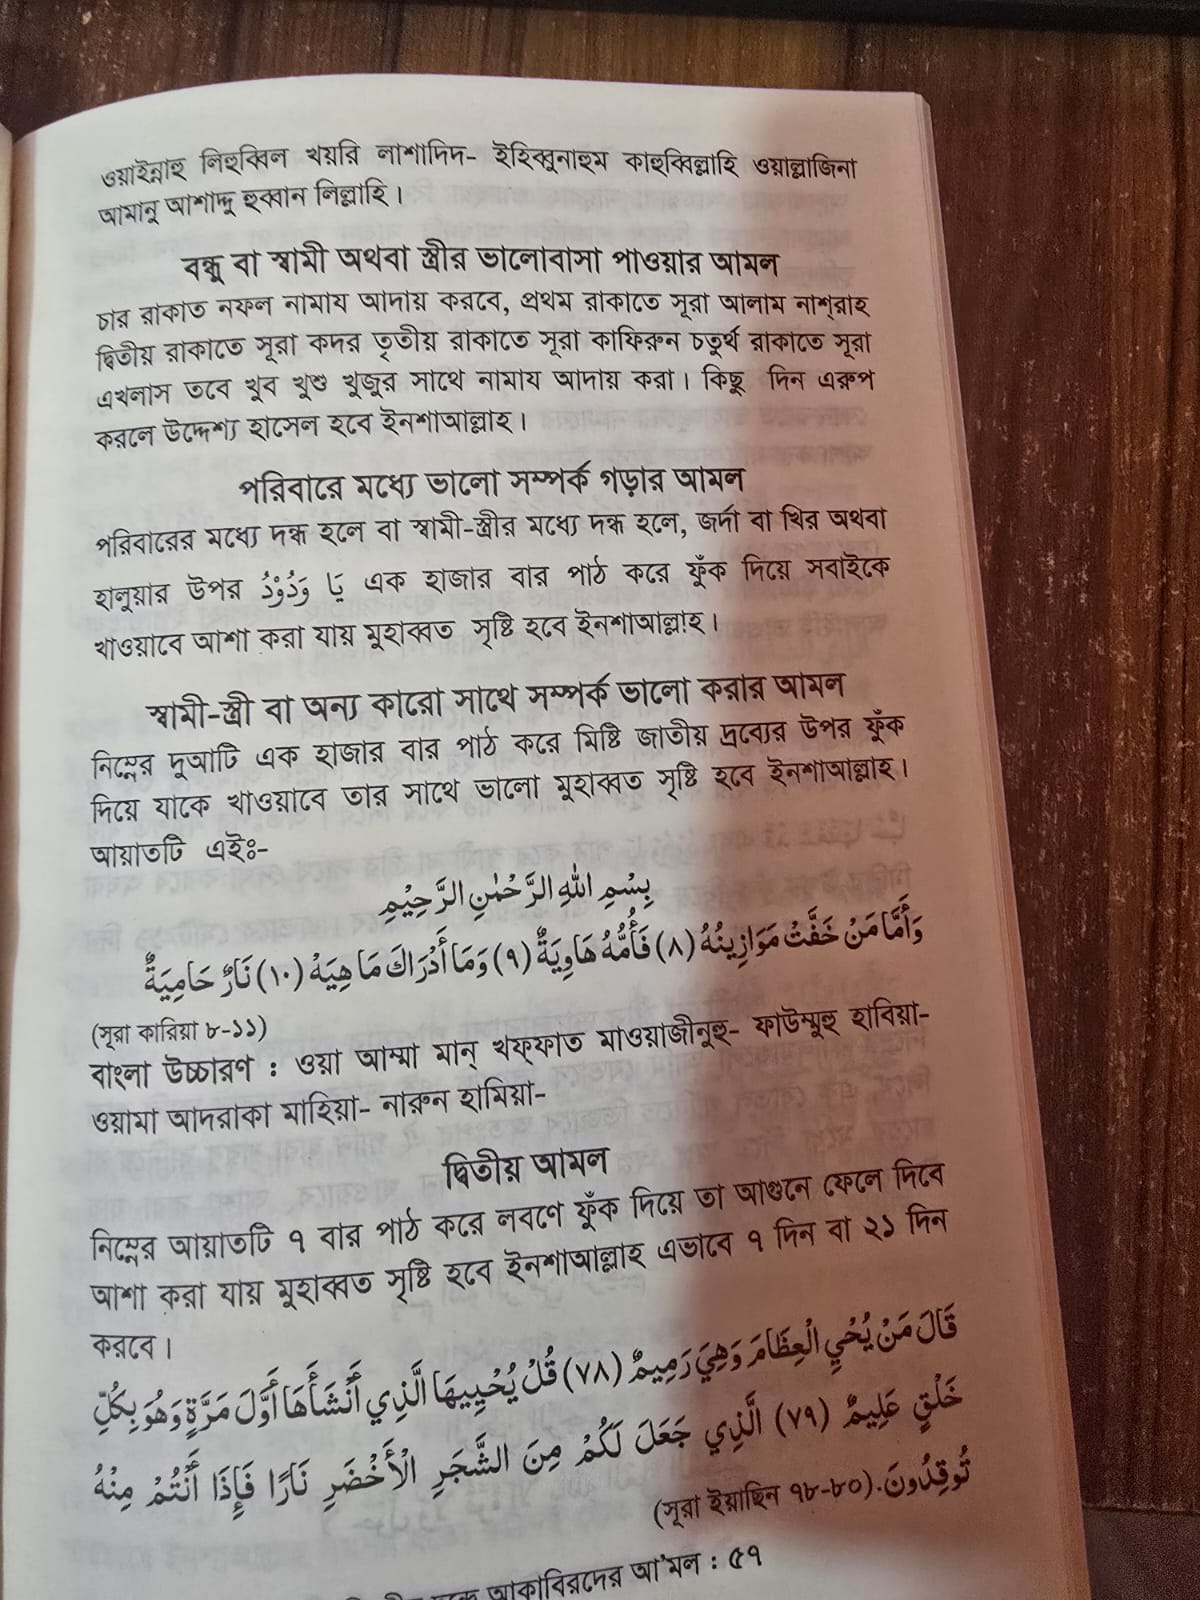 ওয়াইন্নাহু লিহুব্বিল খয়রি লাশাদিদ- ইহিব্বুনাহুম কাহুব্বিল্লাহি ওয়াল্লাজিনা
আমানু আশাদ্দু হুব্বান লিল্লাহি।
বন্ধু বা স্বামী অথবা স্ত্রীর ভালোবাসা পাওয়ার আমল
চার রাকাত নফল নামায আদায় করবে, প্রথম রাকাতে সূরা আলাম নাশ্‌রাহ
দ্বিতীয় রাকাতে সূরা কদর তৃতীয় রাকাতে সূরা কাফিরুন চতুর্থ রাকাতে সূরা
এখলাস তবে খুব খুশু খুজুর সাথে নামায আদায় করা। কিছু দিন এরুপ
করলে উদ্দেশ্য হাসেল হবে ইনশাআল্লাহ।
পরিবারে মধ্যে ভালো সম্পর্ক গড়ার আমল
পরিবারের মধ্যে দন্ধ হলে বা স্বামী-স্ত্রীর মধ্যে দন্ধ হলে, জর্দা বা খির অথবা
হালুয়ার উপর يَا وَدُوْدُ এক হাজার বার পাঠ করে ফুঁক দিয়ে সবাইকে
খাওয়াবে আশা করা যায় মুহাব্বত সৃষ্টি হবে ইনশাআল্লাহ।
স্বামী-স্ত্রী বা অন্য কারো সাথে সম্পর্ক ভালো করার আমল
নিম্নের দুআটি এক হাজার বার পাঠ করে মিষ্টি জাতীয় দ্রব্যের উপর ফুঁক
দিয়ে যাকে খাওয়াবে তার সাথে ভালো মুহাব্বত সৃষ্টি হবে ইনশাআল্লাহ।
আয়াতটি এইঃ-
بِسْمِ اللهِ الرَّحْمٰنِ الرَّحِيْمِ
وَأَمَّا مَنْ خَفَّتْ مَوَازِينُهُ (٨) فَأُمُّهُ هَاوِيَةٌ (٩) وَمَا أَدْرَاكَ مَا هِيَهْ (١٠) نَارٌ حَامِيَةٌ
(সূরা কারিয়া ৮-১১)
বাংলা উচ্চারণ : ওয়া আম্মা মান্ খফ্ফাত মাওয়াজীনুহু- ফাউম্মুহু হাবিয়া-
ওয়ামা আদরাকা মাহিয়া- নারুন হামিয়া-
দ্বিতীয় আমল
নিম্নের আয়াতটি ৭ বার পাঠ করে লবণে ফুঁক দিয়ে তা আগুনে ফেলে দিবে
আশা করা যায় মুহাব্বত সৃষ্টি হবে ইনশাআল্লাহ এভাবে ৭ দিন বা ২১ দিন
করবে।
قَالَ مَنْ يُحْيِ الْعِظَامَ وَهِيَ رَمِيمٌ (٧٨) قُلْ يُحْيِيهَا الَّذِي أَنْشَأَهَا أَوَّلَ مَرَّةٍ وَهُوَ بِكُلِّ
خَلْقٍ عَلِيمٌ (٧٩) الَّذِي جَعَلَ لَكُمْ مِنَ الشَّجَرِ الْأَخْضَرِ نَارًا فَإِذَا أَنْتُمْ مِنْهُ
تُوقِدُونَ. (সূরা ইয়াছিন ৭৮-৮০)
আকাবিরদের আ'মল : ৫৭